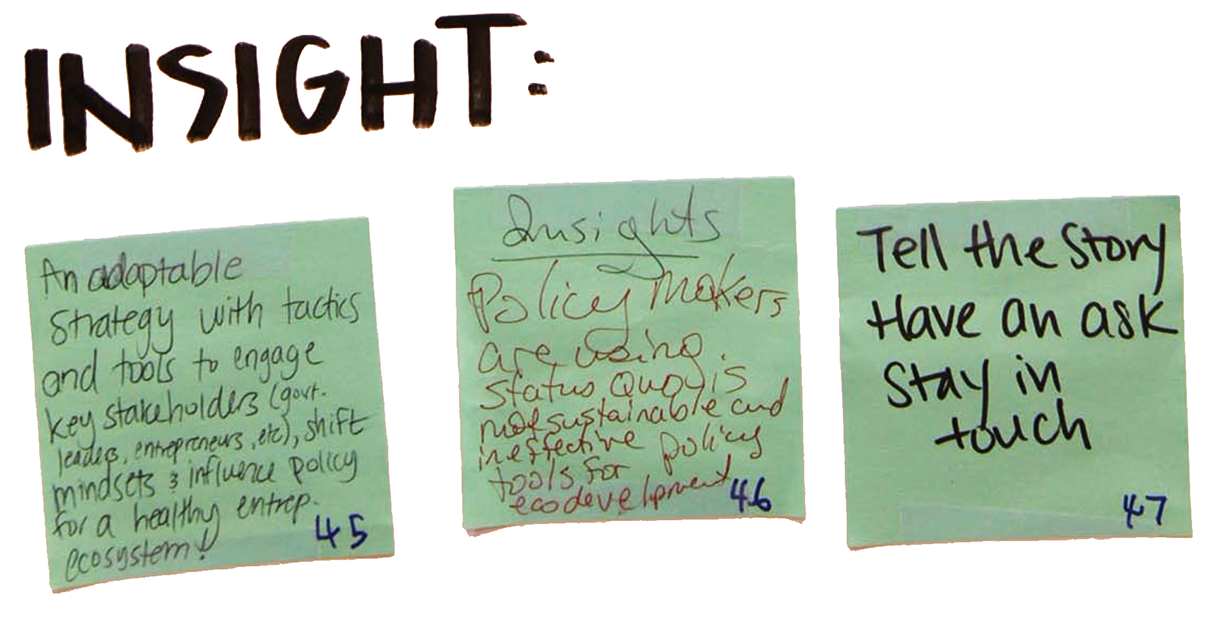 INSIGHT:
An adaptable
strategy with tactics
and tools to engage
key stakeholders (govt.
leaders, entrepreneurs, etc), shift
mindsets & influence policy
for a healthy entrep.
ecosystem!
45
Insights
Policy Makers
are using.
status quo is
not sustainable and
ineffective policy
tools for
ecodevelopment
46
Tell the Story
Have an ask
Stay in
touch
47